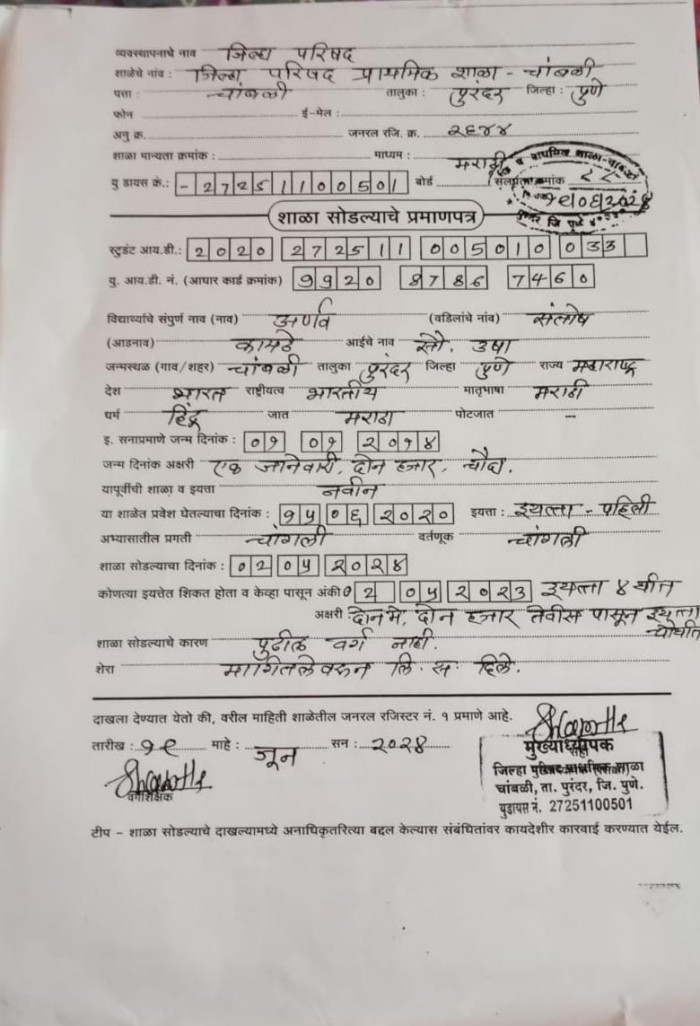 व्यवस्थापनाचे नाव जिल्हा परिषद
शाळेचे नांव : जिल्हा परिषद प्राथमिक शाळा - चांबळी
पत्ता : चांबळी तालुका : पुरंदर जिल्हा : पुणे
फोन ई-मेल :
अनु क्र. जनरल रजि. क्र. २६४४
शाळा मान्यता क्रमांक : माध्यम : मराठी
यु डायस क्रं.: - 27251100501 बोर्ड संलग्नता क्रमांक
शाळा सोडल्याचे प्रमाणपत्र
स्टुडंट आय.डी.: 2020 272511 005010 033
यु. आय.डी. नं. (आधार कार्ड क्रमांक) 9920 8786 7460
विद्यार्थ्याचे संपुर्ण नाव (नाव) अर्णव (वडिलांचे नांव) संतोष
(आडनाव) कामठे आईचे नाव सौ. उषा
जन्मस्थळ (गाव/शहर) चांबळी तालुका पुरंदर जिल्हा पुणे राज्य महाराष्ट्र
देश भारत राष्ट्रीयत्व भारतीय मातृभाषा मराठी
धर्म हिंदू जात मराठा पोटजात --
इ. सनाप्रमाणे जन्म दिनांक : ०१ ०१ २०१४
जन्म दिनांक अक्षरी एक जानेवारी, दोन हजार, चौदा.
यापूर्वीची शाळा व इयत्ता नवीन
या शाळेत प्रवेश घेतल्याचा दिनांक : १५ ०६ २०२० इयत्ता : इयत्ता - पहिली
अभ्यासातील प्रगती चांगली वर्तणूक चांगली
शाळा सोडल्याचा दिनांक : ०२ ०५ २०२४
कोणत्या इयत्तेत शिकत होता व केव्हा पासून अंकी ०2 ०५ २०२३ इयत्ता ४ थीत
अक्षरी दोन मे, दोन हजार तेवीस पासून इयत्ता चौथीत
शाळा सोडल्याचे कारण पुढील वर्ग नाही.
शेरा मागितलेवरून लि. स. दिले.
दाखला देण्यात येतो की, वरील माहिती शाळेतील जनरल रजिस्टर नं. १ प्रमाणे आहे.
तारीख : १९ माहे : जून सन : २०२४
वर्गशिक्षक
मुख्याध्यापक
जिल्हा परिषद प्राथमिक शाळा
चांबळी, ता. पुरंदर, जि. पुणे.
युडायस नं. 27251100501
टीप - शाळा सोडल्याचे दाखल्यामध्ये अनाधिकृतरित्या बदल केल्यास संबंधितांवर कायदेशीर कारवाई करण्यात येईल.